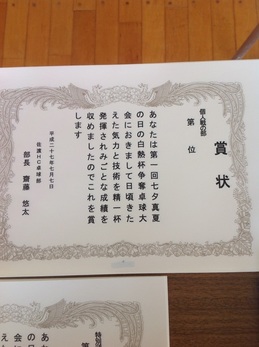 賞状
個人戦の部
第 位
あなたは第一回七夕真夏
の日の白熱杯争奪卓球大
会におきまして日頃きた
えた気力と技術を精一杯
発揮されみごとな成績を
収めましたのでこれを賞
します
平成二十七年七月七日
佐渡HC卓球部
部長 齋藤 悠太
特別
第
あな
の日
会に
えた